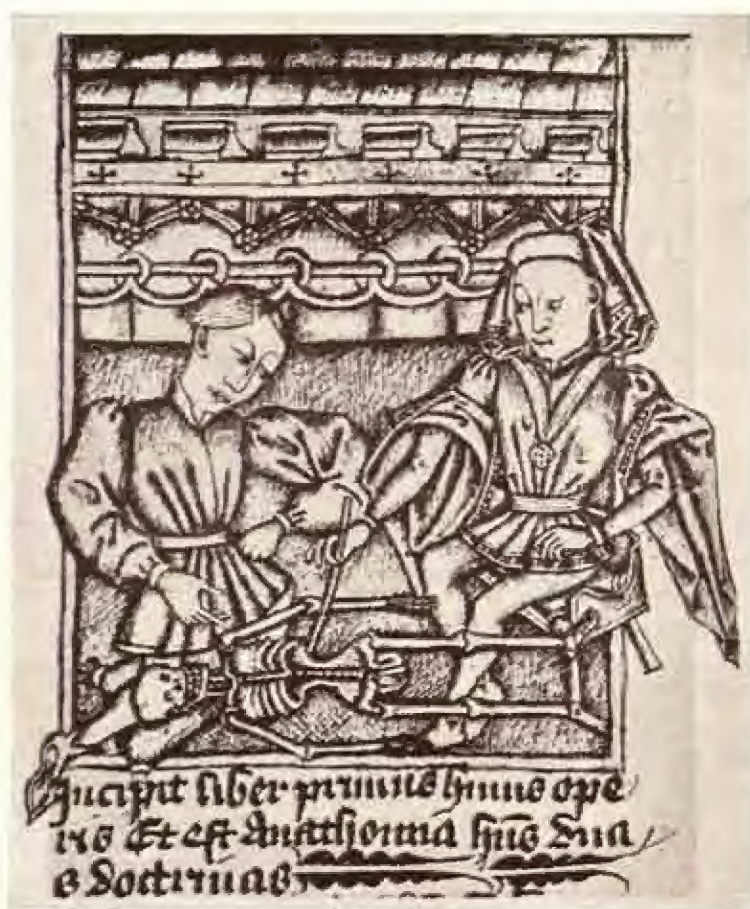 Incipit liber primus huius ope
ris Et est Anathomia hūs dua
s doctrinas